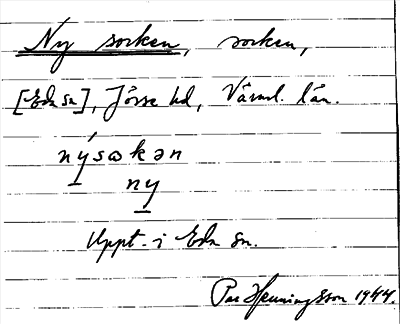 Ny socken, socken,
[Eda sn], Jösse hd, Värml. län.
nýsωkən
ny
Uppt. i Eda sn.
Per Henningsson 1944.